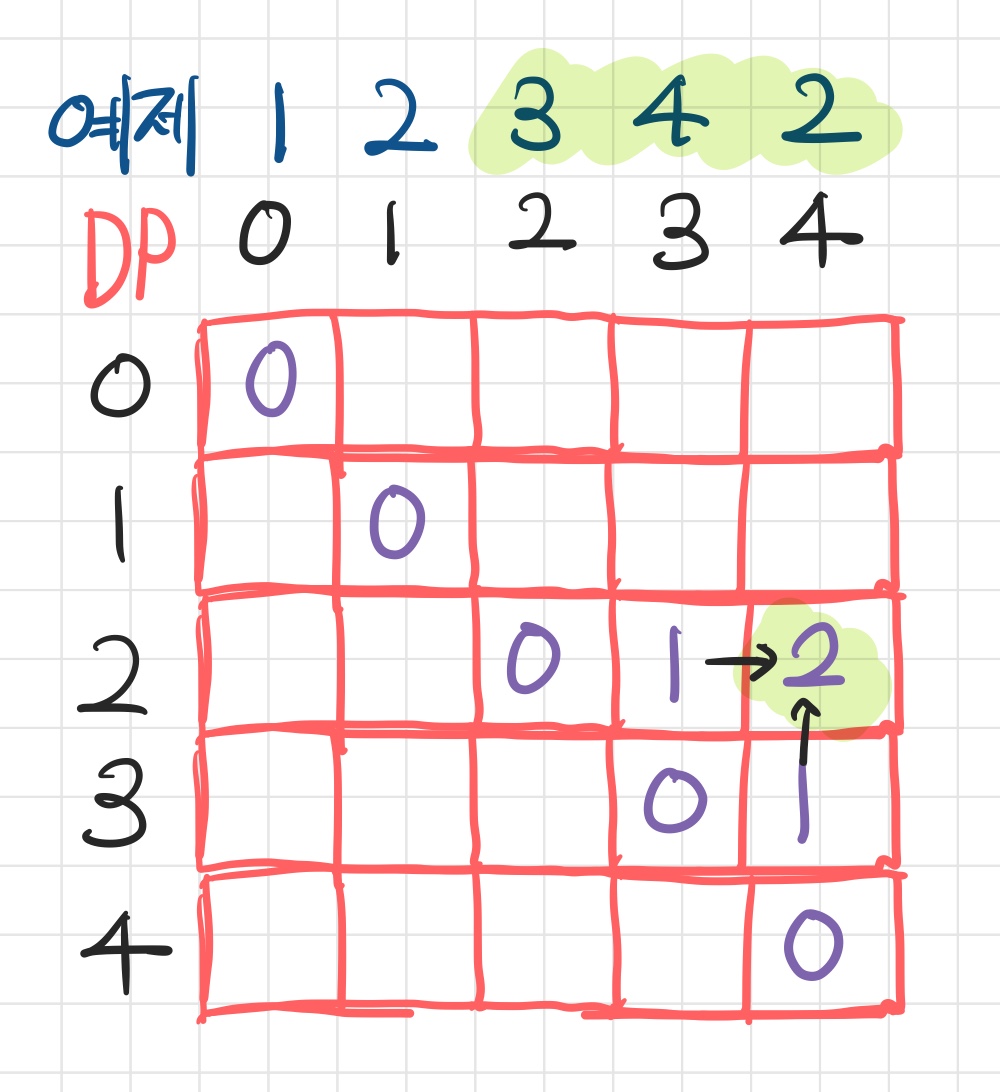 예제 1 2 3 4 2
DP 0 1 2 3 4
0 0
1 0
2 0 1 → 2
↑
3 0 1
4 0